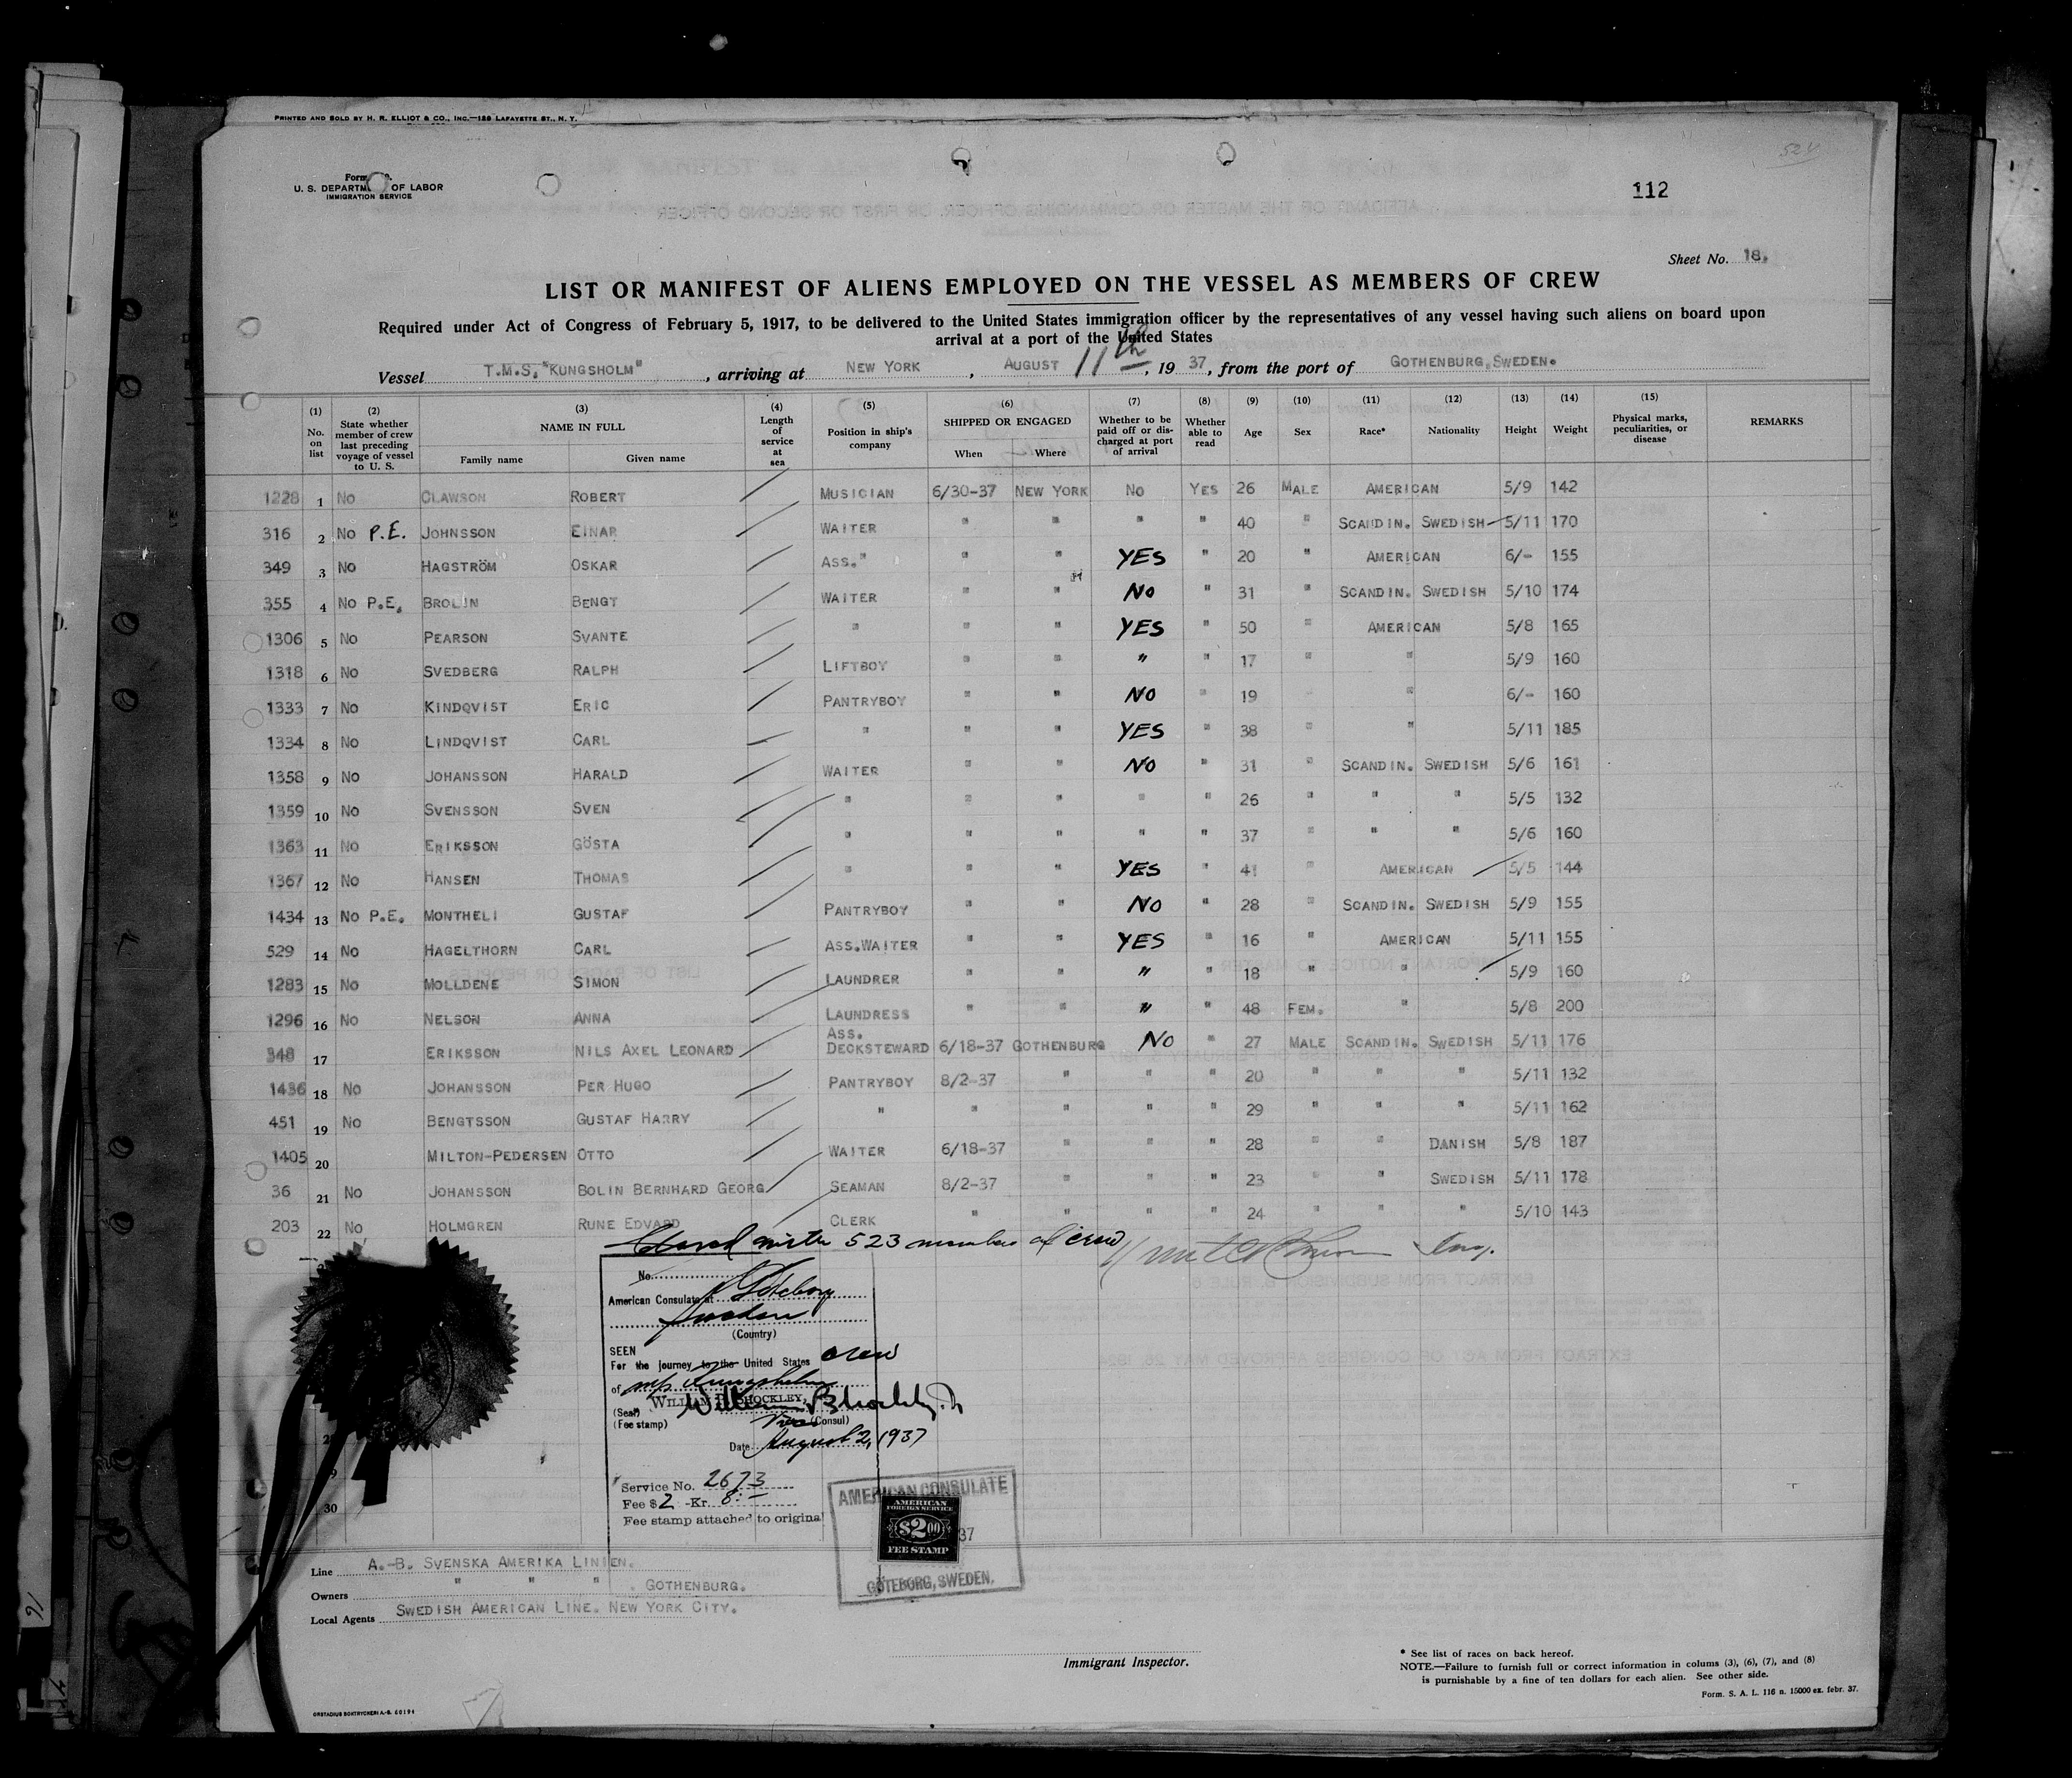 PRINTED AND SOLD BY H. R. ELLIOT & CO., INC.—128 LAFAYETTE ST., N. Y.
524
Form
U. S. DEPARTM OF LABOR
IMMIGRATION SERVICE
112
Sheet No. 18.
LIST OR MANIFEST OF ALIENS EMPLOYED ON THE VESSEL AS MEMBERS OF CREW
Required under Act of Congress of February 5, 1917, to be delivered to the United States immigration officer by the representatives of any vessel having such aliens on board upon
arrival at a port of the United States
Vessel T.M.S. "KUNGSHOLM", arriving at NEW YORK, AUGUST 11th, 1937, from the port of GOTHENBURG, SWEDEN.
(1) No. on list (2) State whether member of crew last preceding voyage of vessel to U. S. (3) NAME IN FULL Family name Given name (4) Length of service at sea (5) Position in ship's company (6) SHIPPED OR ENGAGED When Where (7) Whether to be paid off or discharged at port of arrival (8) Whether able to read (9) Age (10) Sex (11) Race* (12) Nationality (13) Height (14) Weight (15) Physical marks, peculiarities, or disease REMARKS
1228 1 No CLAWSON ROBERT MUSICIAN 6/30-37 NEW YORK No YES 26 MALE AMERICAN 5/9 142
316 2 No P.E. JOHNSSON EINAR WAITER " " " " 40 " SCANDIN. SWEDISH 5/11 170
349 3 No HAGSTRÖM OSKAR ASS." " " YES " 20 " AMERICAN 6/- 155
355 4 No P.E. BROLIN BENGT WAITER " " NO " 31 " SCANDIN. SWEDISH 5/10 174
1306 5 No PEARSON SVANTE " " " YES " 50 " AMERICAN 5/8 165
1318 6 No SVEDBERG RALPH LIFTBOY " " " " 17 " " 5/9 160
1333 7 No KINDQVIST ERIC PANTRYBOY " " NO " 19 " " 6/- 160
1334 8 No LINDQVIST CARL " " " YES " 38 " " 5/11 185
1358 9 No JOHANSSON HARALD WAITER " " NO " 31 " SCANDIN. SWEDISH 5/6 161
1359 10 No SVENSSON SVEN " " " " " 26 " " " 5/5 132
1363 11 No ERIKSSON GÖSTA " " " " " 37 " " " 5/6 160
1367 12 No HANSEN THOMAS " " " YES " 41 " AMERICAN 5/5 144
1434 13 No P.E. MONTHELI GUSTAF PANTRYBOY " " NO " 28 " SCANDIN. SWEDISH 5/9 155
529 14 No HAGELTHORN CARL ASS.WAITER " " YES " 16 " AMERICAN 5/11 155
1283 15 No MOLLDENE SIMON LAUNDRER " " " " 18 " " 5/9 160
1296 16 No NELSON ANNA LAUNDRESS " " " " 48 FEM. " 5/8 200
348 17 ERIKSSON NILS AXEL LEONARD ASS. DECKSTEWARD 6/18-37 GOTHENBURG NO " 27 MALE SCANDIN. SWEDISH 5/11 176
1436 18 No JOHANSSON PER HUGO PANTRYBOY 8/2-37 " " " 20 " " " 5/11 132
451 19 No BENGTSSON GUSTAF HARRY " " " " " 29 " " " 5/11 162
1405 20 MILTON-PEDERSEN OTTO WAITER 6/18-37 " " " 28 " " DANISH 5/8 187
36 21 No JOHANSSON BOLIN BERNHARD GEORG SEAMAN 8/2-37 " " " 23 " " SWEDISH 5/11 178
203 22 No HOLMGREN RUNE EDVARD CLERK " " " " 24 " " " 5/10 143
Closed with 523 members of crew
No.
American Consulate at Göteborg
Sweden
(Country)
SEEN
For the journey to the United States crew
of m/s Kungsholm
WILLIAM B. SHOCKLEY,
(Seal)
(Fee stamp) Vice (Consul)
Date August 2, 1937
Service No. 2673
Fee $2 -Kr. 8:—
Fee stamp attached to original
AMERICAN CONSULATE
AMERICAN
FOREIGN SERVICE
$2.00
FEE STAMP
37
GÖTEBORG, SWEDEN.
30
Line A.-B. SVENSKA AMERIKA LINIEN.
Owners " " " GOTHENBURG.
Local Agents SWEDISH AMERICAN LINE. NEW YORK CITY.
Immigrant Inspector.
* See list of races on back hereof.
NOTE.—Failure to furnish full or correct information in colums (3), (6), (7), and (8)
is punishable by a fine of ten dollars for each alien. See other side.
Form. S. A. L. 116 n. 15000 ex. febr. 37.
ORSTADIUS BOKTRYCKERI A.-B. 60194